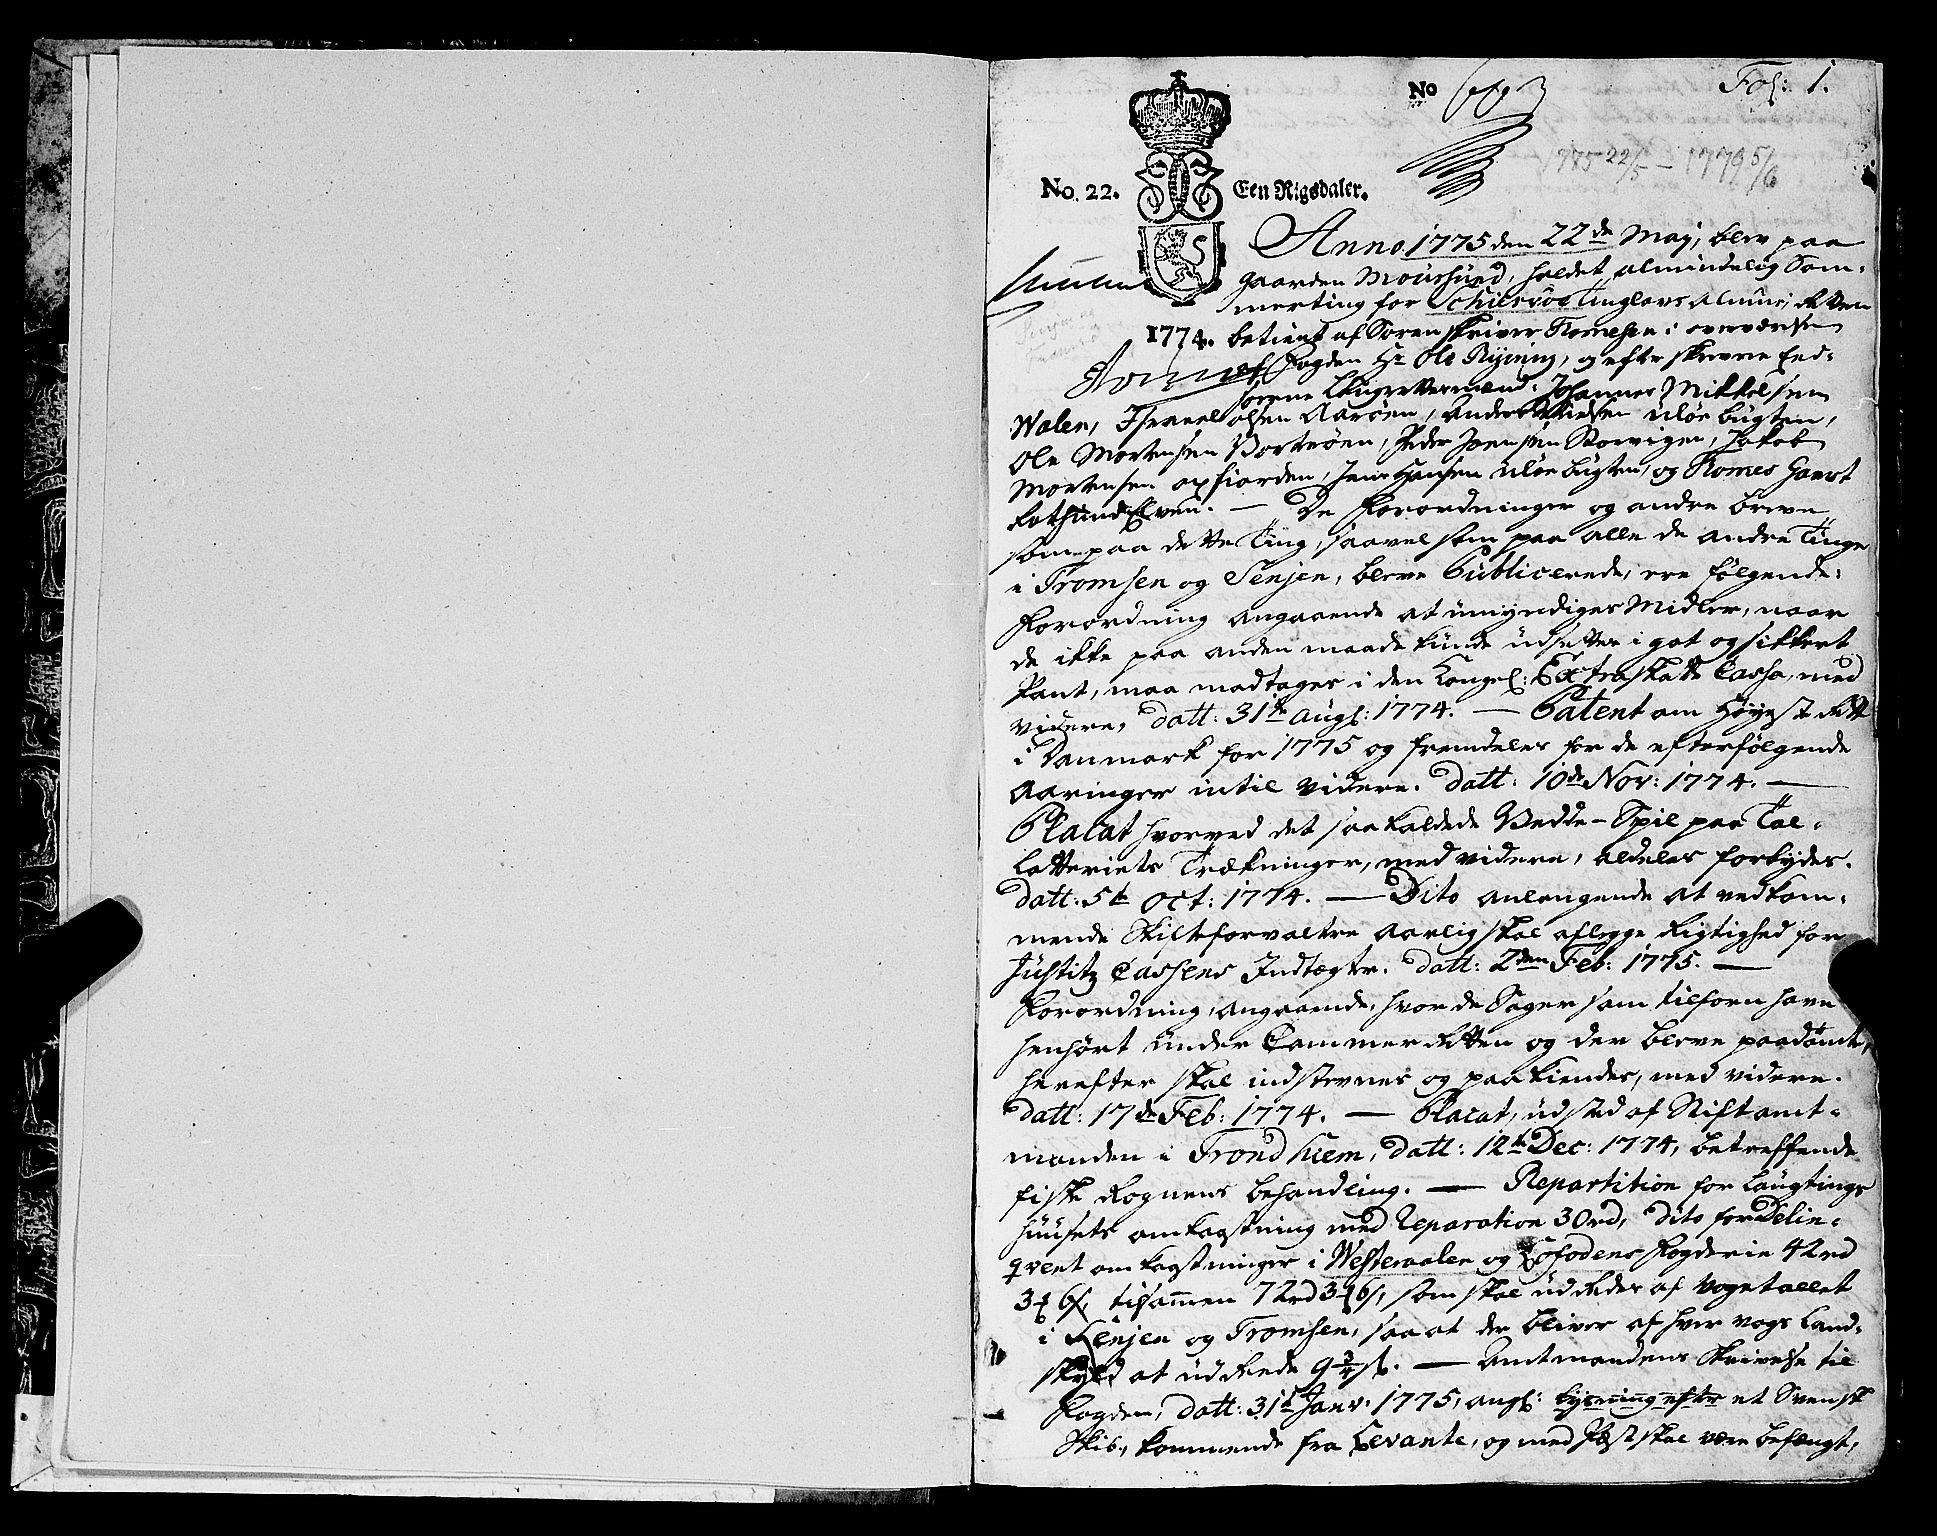 No 663
Fol: 1.
1775 22/5 - 1776 5/6
No. 22. Een Rigsdaler.
Anno 1775 den 22de Maj, blev paa
gaarden Moursund, holdet almindelig Som-
merting for Schiervöe Tinglavs Almue, Retten
1774. betient af Sorenskriver Komesen: overværelse
Fogden Hr Ole Ryning, og efterskrevne Eed-
sorene Laugrettesmænd: Johannes Mikkelsen
Walen, Israel Olsen Aaröen, Anders Nielsen Ulöebugten,
Ole Mortensen Vorteröen, Peder Joensen Storvigen, Jakob
Mortensen Oxfiorden, Jens Hansen Ulöebugten, og Komes Gavst
Rotsundelven. — De Forordninger og andre breve
som paa dette Ting, saavel som paa alle de andre Tinge
i Tromsen og Senjen, bleve Publicerede, ere følgende:
Forordning angaaende at umyndiges Midler, naar
de ikke paa anden maade kunde udsettes i got og sikkert
Pant, maa modtages i den Kongel: Extraskatts Cassa, med
videre, datt: 31te Augs: 1774. — Patent om Høyeste Rett
i Danmark for 1775 og fremdeles for de efterfølgende
Aaringer intil videre. datt: 10de Nov: 1774. —
Placat hvorved det saa kaldede Vedde-Spil paa Tal-
Lotteriets Trækninger, med videre, aldeles forbydes.
datt: 5te Oct: 1774. — Dito anlangende at vedkom-
mende Skifteforvaltere Aarlig skal aflegge Rigtighed for
Justitz Cassens Indtægter. datt: 2den Feb: 1775. —
Forordning, angaaende, hvor de Sager som tilforn have
henhört under Cammer Retten og der bleve paadömte,
herefter skal indstevnes og paakiendes, med videre.
datt: 17de Feb: 1774. — Placat, udsted af Stiftamt-
manden i Trondhiem, datt: 12te Dec: 1774, betreffende
fiske Rognens behandling. — Repartition for Laugtings
huusets omkostning med Reparation 30rd, dito for Delin-
qvent omkostninger i Westeraalen og Lofodens Fogderie 42rd
3 6s, tilsammen 72rd 3 6s, som skal udredes af Vogetallet
i Senjen og Tromsen, saa at der bliver af hver vogs Land-
skyld at udrede 9 3/4 s. — Amtmandens Skrivelse til
Fogden, datt: 31te Janv: 1775, angl: lysning efter et Svensk
Skib, kommende fra Levante, og med Pæst skal være befængt,